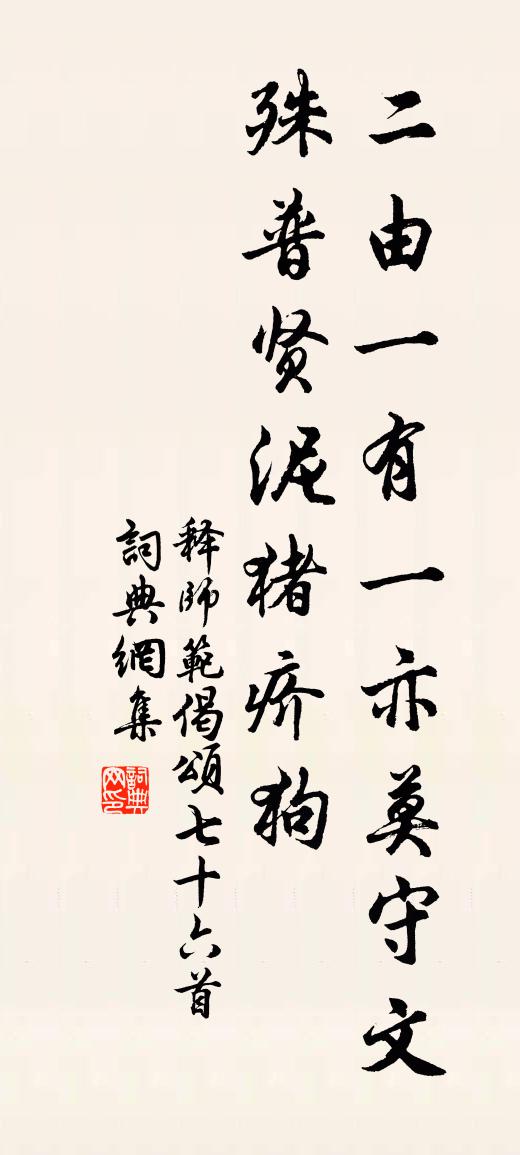 二由一有一亦莫守文
殊普贤泥猪疥狗
释師範偈頌七十六首
詞典網集
詞典网印